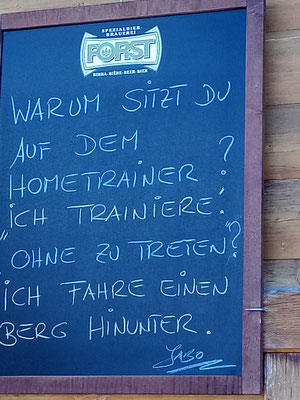 SPEZIALBIER-
BRAUEREI
FORST
BIRRA·BIÈRE·BEER·BIER
WARUM SITZT DU
AUF DEM
HOMETRAINER?
"ICH TRAINIERE."
"OHNE ZU TRETEN"?
ICH FAHRE EINEN
BERG HINUNTER.